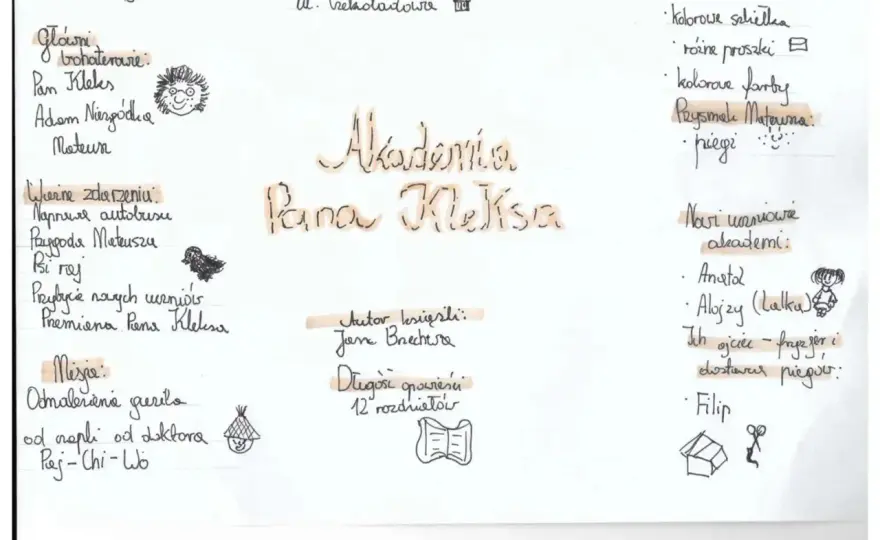 ul. Czekoladowa
Główni
bohaterowie:
Pan Kleks
Adam Niezgódka
Mateusz
Ważne zdarzenia:
Naprawa autobusu
Przygoda Mateusza
Psi raj
Przybycie nowych uczniów
Przemiana Pana Kleksa
Misja:
Odnalezienie guzika
od czapki od doktora
Paj-Chi-Wo
Akademia
Pana Kleksa
Autor książki:
Jan Brzechwa
Długość opowieści
12 rozdziałów
· kolorowe szkiełka
· różne proszki
· kolorowe farby
Przysmak Mateusza:
· piegi
Nowi uczniowie
akademi:
· Anatol
· Alojzy (Lalka)
Ich ojciec – fryzjer i
dostawca piegów:
· Filip